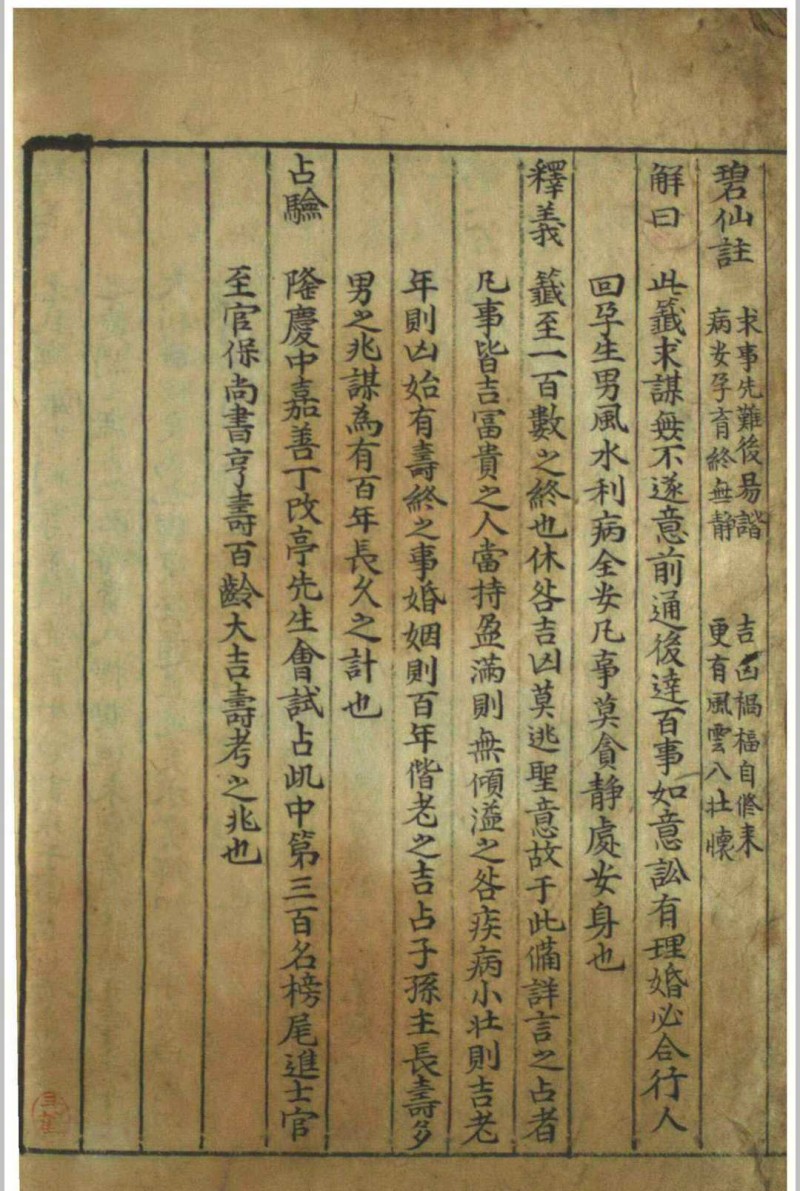 碧仙註 求事先難後易諧 吉凶禍福自修来
病安孕育終無静 更有風雲入壯懷
解曰 此籤求謀無不遂意前通後達百事如意訟有理婚必合行人
回孕生男風水利病全安凡事莫貪静處安身也
釋義 籤至一百數之終也休咎吉凶莫逃聖意故于此備詳言之占者
凡事皆吉富貴之人當持盈滿則無傾溢之咎疾病小壯則吉老
年則凶始有壽終之事婚姻則百年偕老之吉占子孫主長壽多
男之兆謀為有百年長久之計也
占驗 隆慶中嘉善丁改亭先生會試占此中第三百名榜尾進士官
至官保尚書亨壽百齡大吉壽考之兆也